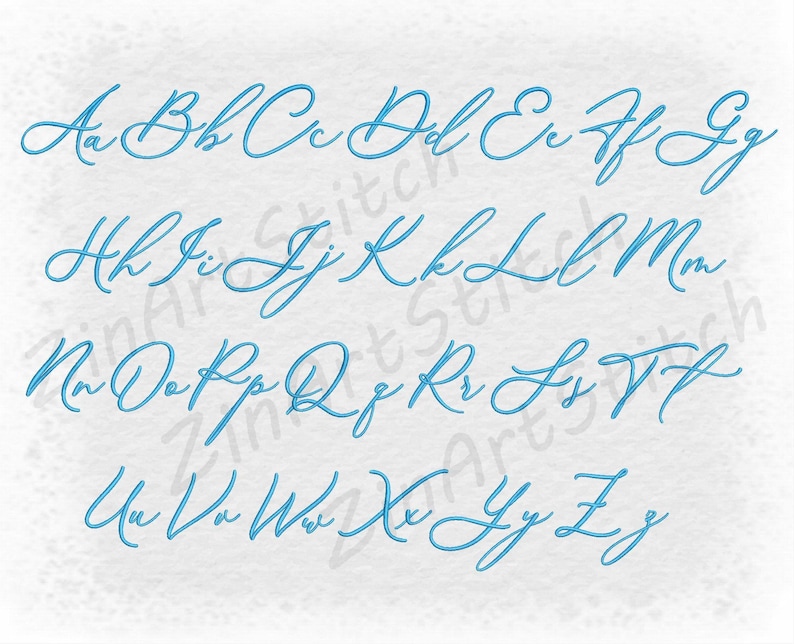 Aa Bb Cc Dd Ee Ff Gg
Hh Ii Jj Kk Ll Mm
Nn Oo Pp Qq Rr Ss Tt
Uu Vv Ww Xx Yy Zz
ZinArtStitch
ZinArtStitch
ZinArtStitch